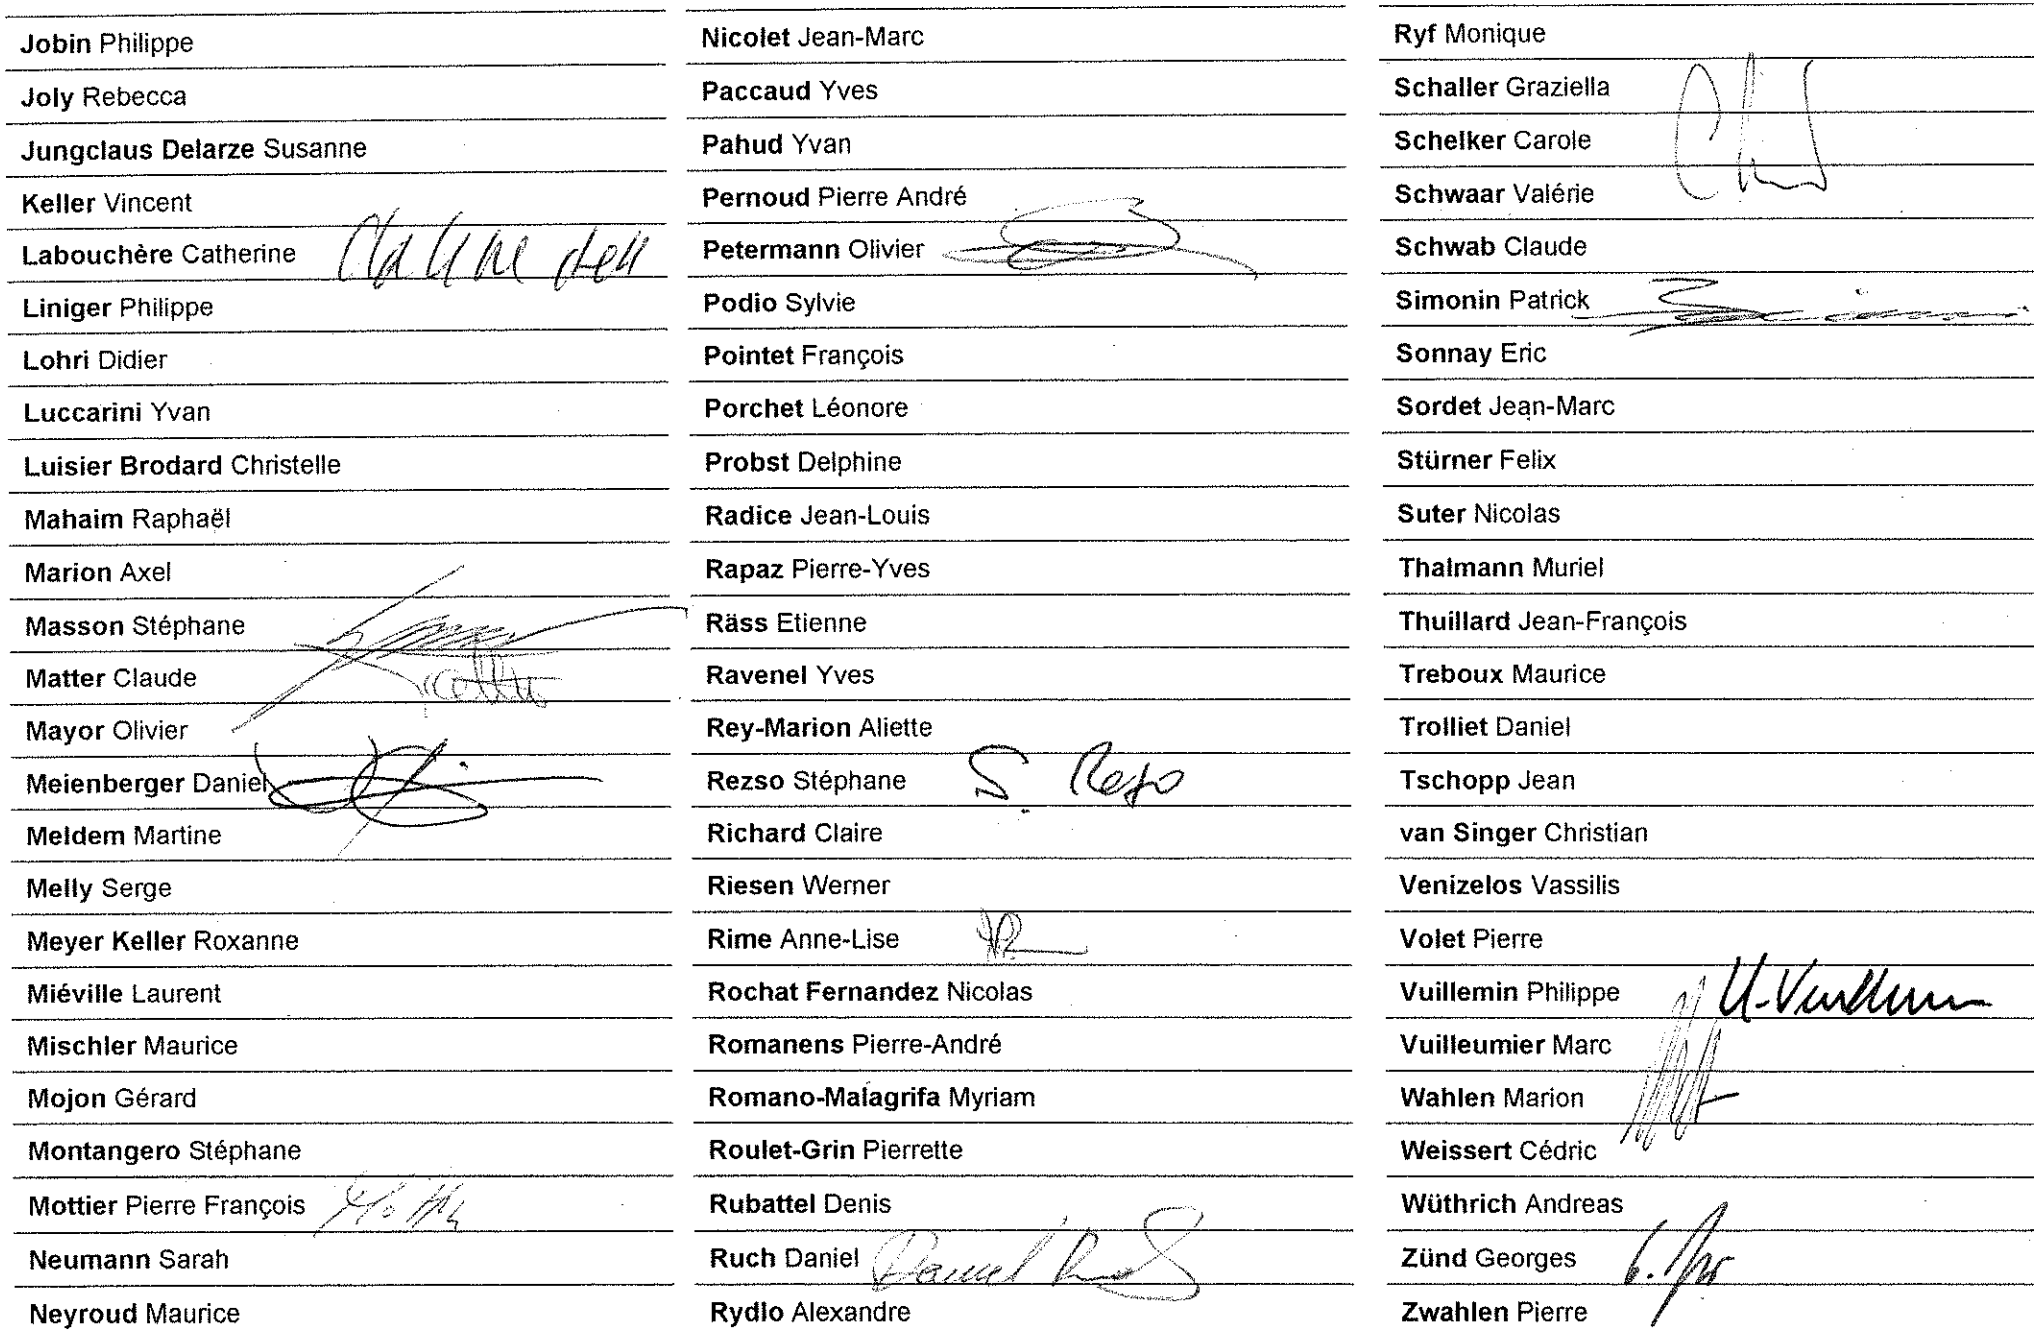 Jobin Philippe
Joly Rebecca
Jungclaus Delarze Susanne
Keller Vincent
Labouchère Catherine
Liniger Philippe
Lohri Didier
Luccarini Yvan
Luisier Brodard Christelle
Mahaim Raphaël
Marion Axel
Masson Stéphane
Matter Claude
Mayor Olivier
Meienberger Daniel
Meldem Martine
Melly Serge
Meyer Keller Roxanne
Miéville Laurent
Mischler Maurice
Mojon Gérard
Montangero Stéphane
Mottier Pierre François
Neumann Sarah
Neyroud Maurice
Nicolet Jean-Marc
Paccaud Yves
Pahud Yvan
Pernoud Pierre André
Petermann Olivier
Podio Sylvie
Pointet François
Porchet Léonore
Probst Delphine
Radice Jean-Louis
Rapaz Pierre-Yves
Räss Etienne
Ravenel Yves
Rey-Marion Aliette
Rezso Stéphane S. Rezso
Richard Claire
Riesen Werner
Rime Anne-Lise
Rochat Fernandez Nicolas
Romanens Pierre-André
Romano-Malagrifa Myriam
Roulet-Grin Pierrette
Rubattel Denis
Ruch Daniel Daniel Ruch
Rydlo Alexandre
Ryf Monique
Schaller Graziella
Schelker Carole
Schwaar Valérie
Schwab Claude
Simonin Patrick
Sonnay Eric
Sordet Jean-Marc
Stürner Felix
Suter Nicolas
Thalmann Muriel
Thuillard Jean-François
Treboux Maurice
Trolliet Daniel
Tschopp Jean
van Singer Christian
Venizelos Vassilis
Volet Pierre
Vuillemin Philippe
Vuilleumier Marc
Wahlen Marion
Weissert Cédric
Wüthrich Andreas
Zünd Georges
Zwahlen Pierre